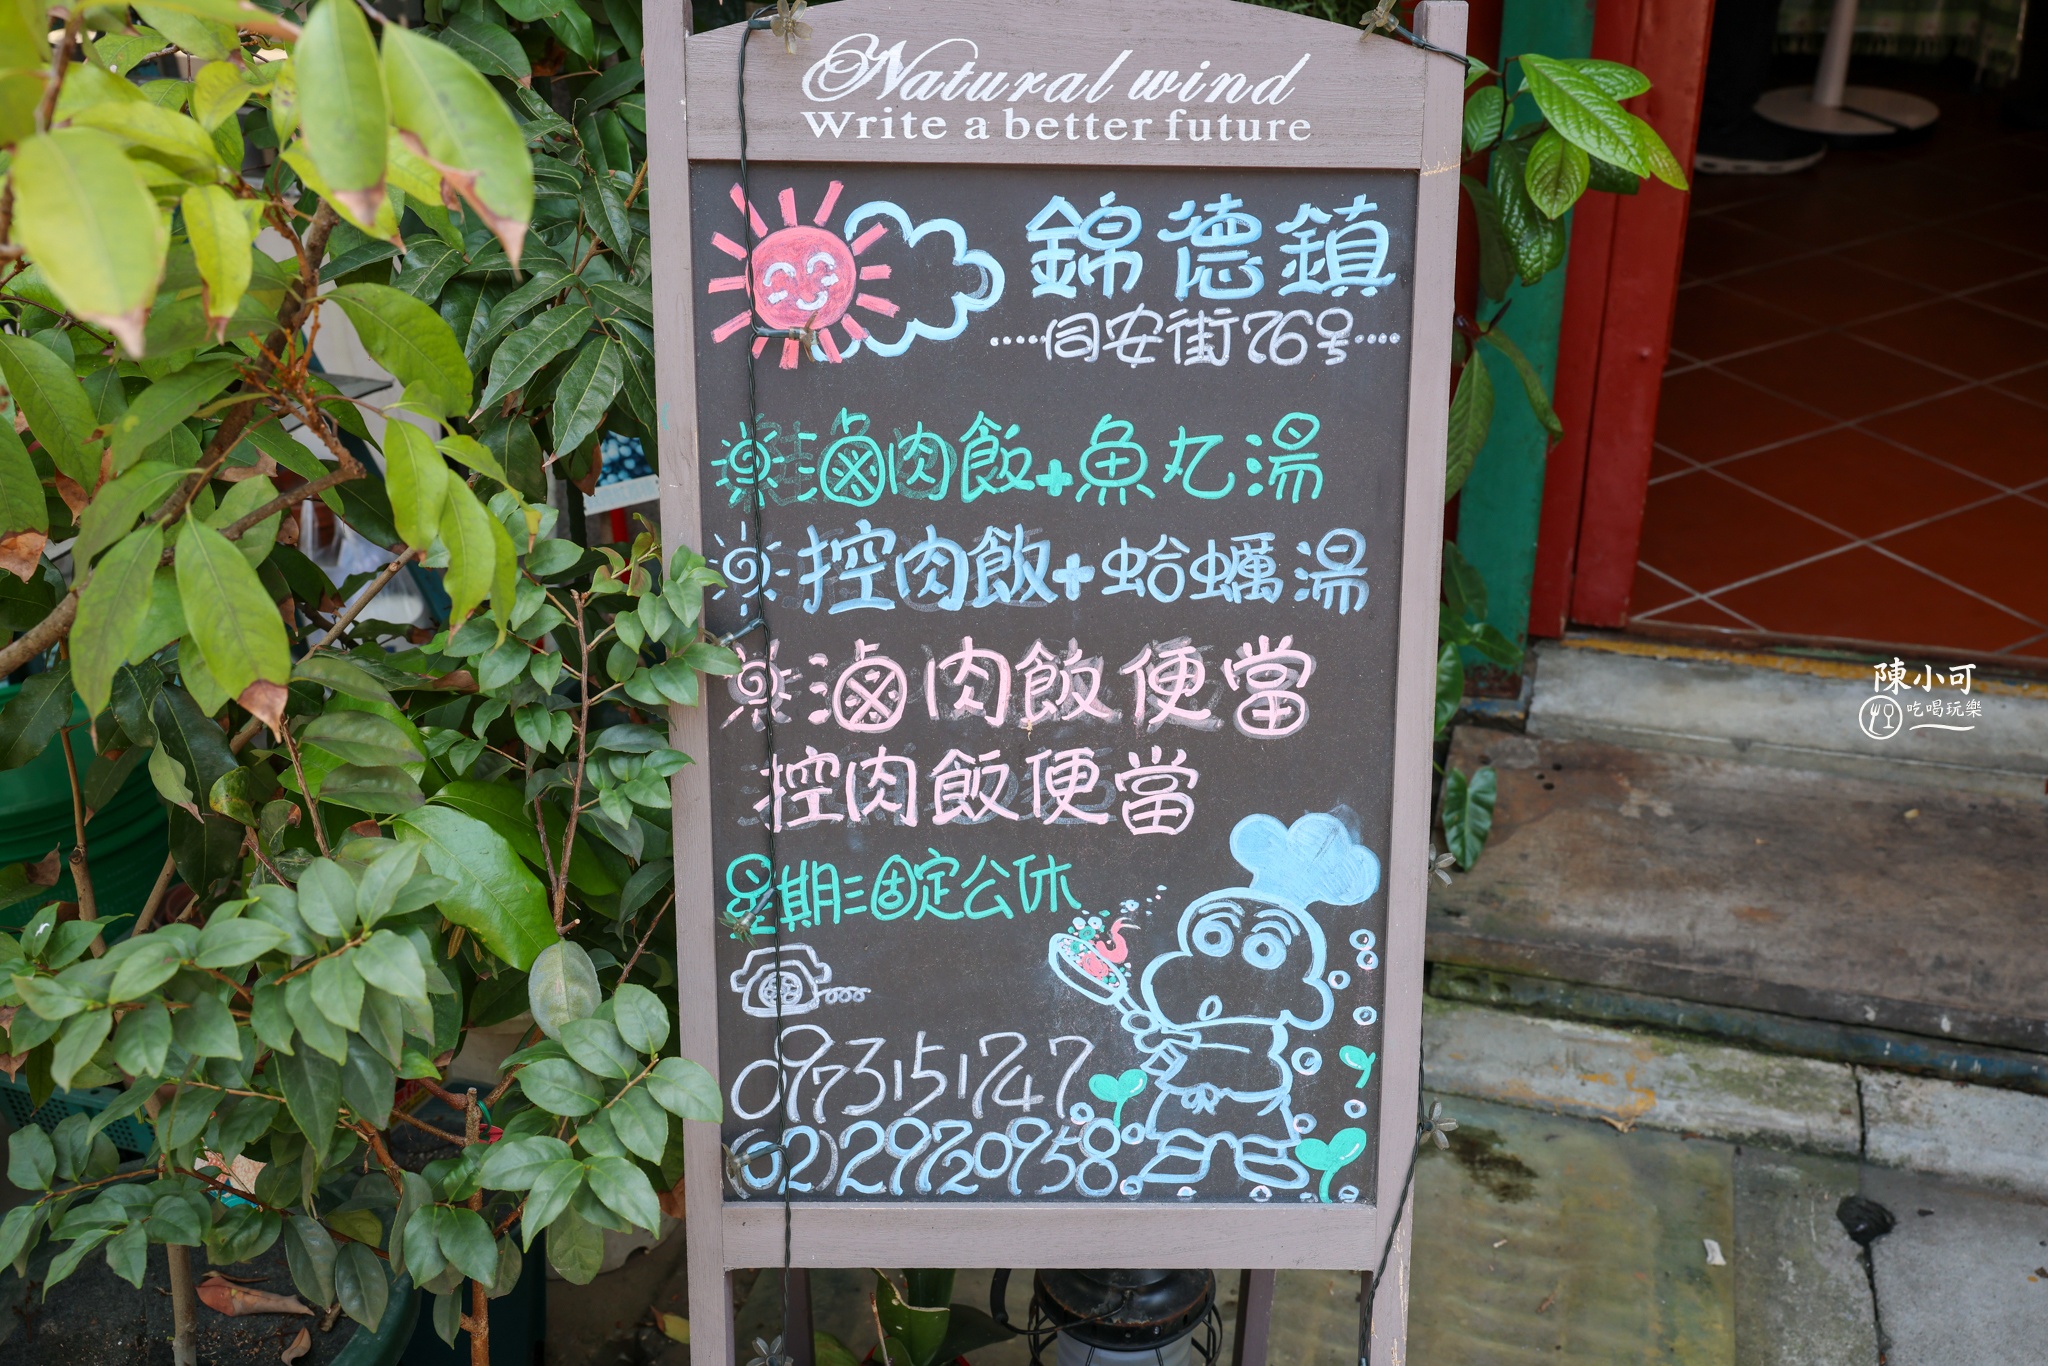 Natural wind
Write a better future
錦德鎮
....同安街76号....
滷肉飯+魚丸湯
控肉飯+蛤蠣湯
滷肉飯便當
控肉飯便當
星期三固定公休
0973151747
(02)29720958
陳小可
吃喝玩樂